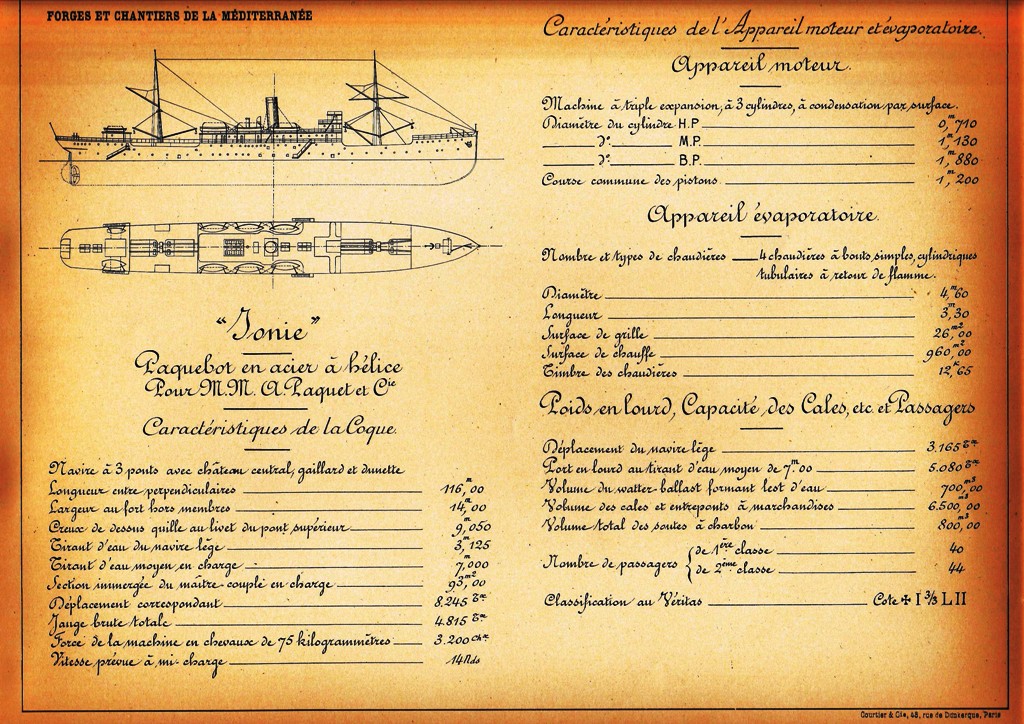 FORGES ET CHANTIERS DE LA MÉDITERRANÉE
"Ionie"
Paquebot en acier à hélice
Pour M.M. A. Paquet et Cie
Caractéristiques de la Coque.
Navire à 3 ponts avec château central, gaillard et dunette
Longueur entre perpendiculaires 116,m00
Largeur au fort hors membres 14,m00
Creux de dessus quille au livet du pont supérieur 9,m050
Tirant d'eau du navire lège 3,m125
Tirant d'eau moyen en charge 7,m000
Section immergée du maître couple en charge 93,m²00
Déplacement correspondant 8.245 Tx
Jauge brute totale 4.815 Tx
Force de la machine en chevaux de 75 kilogrammètres 3.200 chx
Vitesse prévue à mi-charge 14 Nds
Caractéristiques de l'Appareil moteur et évaporatoire.
Appareil moteur.
Machine à triple expansion, à 3 cylindres, à condensation par surface.
Diamètre du cylindre H.P. 0,m710
do M.P. 1,m130
do B.P. 1,m880
Course commune des pistons 1,m200
Appareil évaporatoire.
Nombre et types de chaudières 4 chaudières à bouts simples, cylindriques
tubulaires à retour de flamme.
Diamètre 4,m60
Longueur 3,m30
Surface de grille 26,m²00
Surface de chauffe 960,m²00
Timbre des chaudières 12,k65
Poids en lourd, Capacité des Cales, etc. et Passagers
Déplacement du navire lège 3.165 Tx
Port en lourd au tirant d'eau moyen de 7,m00 5.080 Tx
Volume du watter-ballast formant lest d'eau 700,m³00
Volume des cales et entreponts à marchandises 6.500,m³00
Volume total des soutes à charbon 800,m³00
Nombre de passagers { de 1ère classe 40
de 2ème classe 44
Classification au Véritas Cote ✠ I 3/3 L II
Courtier & Cie, 43, rue de Dunkerque, Paris